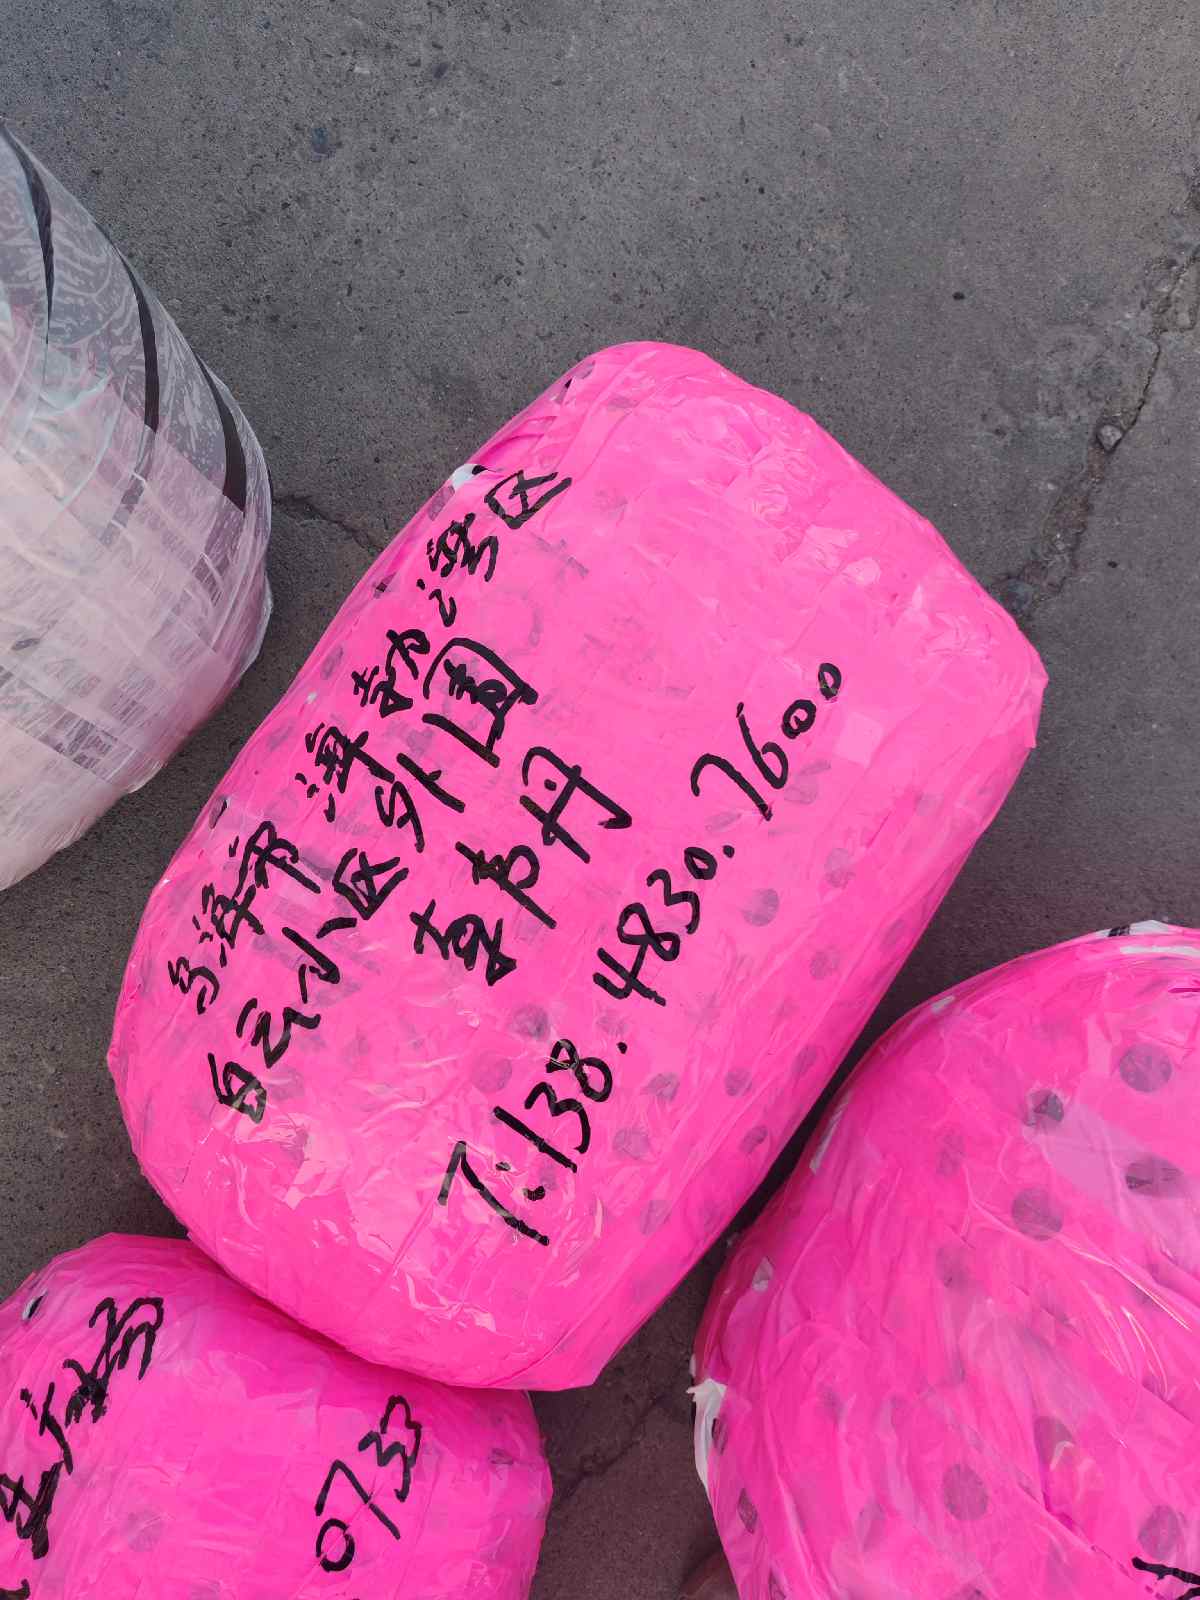 乌海市 海勃湾区
白云小区外围
袁书丹
T:138.4830.7600
0733